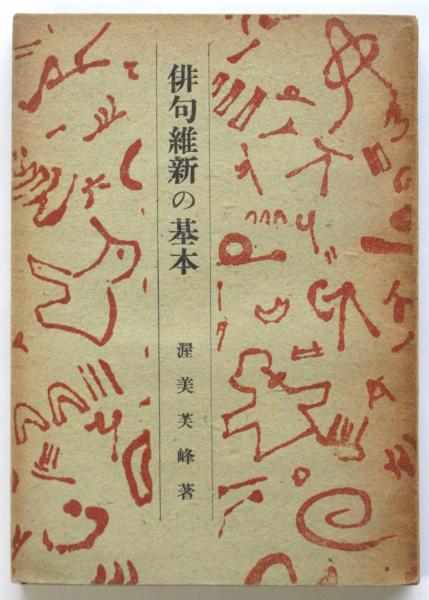 俳句維新の基本
渥美芙峰著